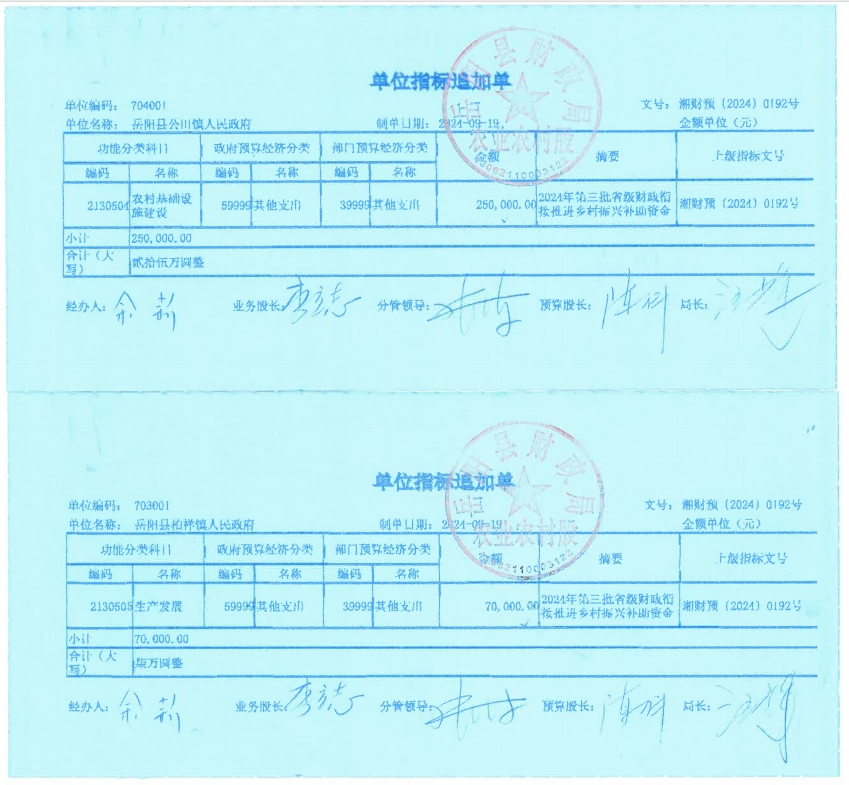 单位指标追加单
单位编码： 704001 文号： 湘财预〔2024〕0192号
单位名称： 岳阳县公田镇人民政府 制单日期： 2024-09-19 金额单位（元）
功能分类科目 政府预算经济分类 部门预算经济分类 金额 摘要 上级指标文号
编码 名称 编码 名称 编码 名称
2130504 农村基础设施建设 59999 其他支出 39999 其他支出 250,000.00 2024年第三批省级财政衔接推进乡村振兴补助资金 湘财预〔2024〕0192号
小计 250,000.00
合计（大写） 贰拾伍万圆整
经办人： 业务股长： 分管领导： 预算股长： 局长：
岳阳县财政局
农业农村股
单位指标追加单
单位编码： 703001 文号： 湘财预〔2024〕0192号
单位名称： 岳阳县柏祥镇人民政府 制单日期： 2024-09-19 金额单位（元）
功能分类科目 政府预算经济分类 部门预算经济分类 金额 摘要 上级指标文号
编码 名称 编码 名称 编码 名称
2130505 生产发展 59999 其他支出 39999 其他支出 70,000.00 2024年第三批省级财政衔接推进乡村振兴补助资金 湘财预〔2024〕0192号
小计 70,000.00
合计（大写） 柒万圆整
经办人： 业务股长： 分管领导： 预算股长： 局长：
岳阳县财政局
农业农村股